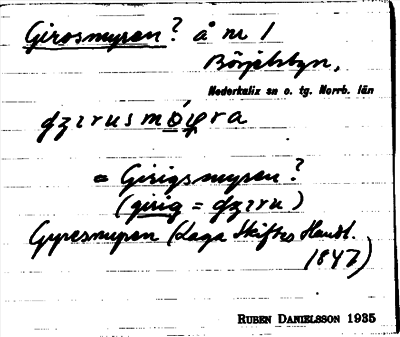 Girosmyren? å nr 1
Börjelsbyn,
Nederkalix sn o. tg. Norrb. län
gzirusmóyra
= Girigsmyren?
(girig = gziru)
Gyresmyren (Laga Skiftes Handl.
1847)
RUBEN DANIELSSON 1935